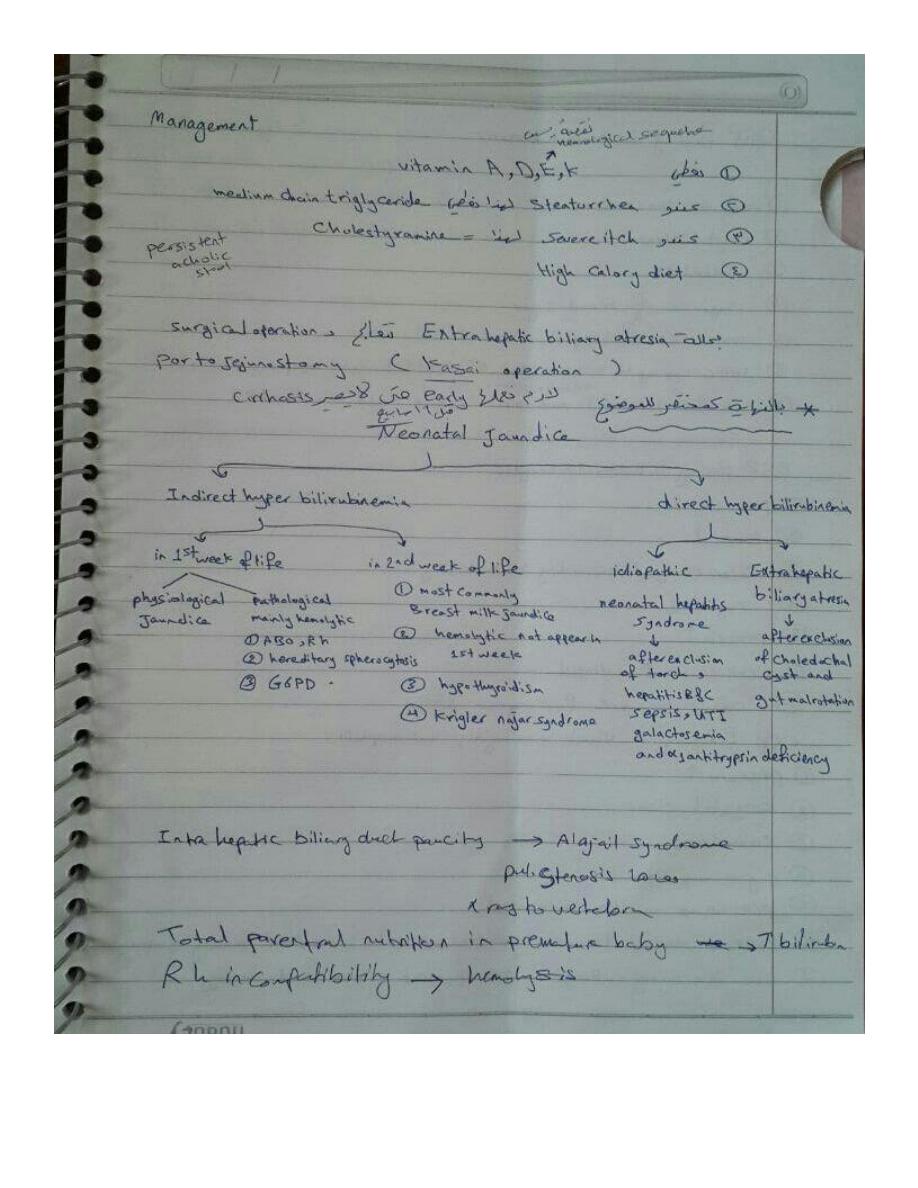 Management
neurological sequelae
① نعطي vitamin A, D, E, K
② عندو Steaturrhea لهذا نعطي medium chain triglyceride
③ عندو Severe itch لهذا = Cholestyramine
④ High Calory diet
persistent
acholic
stool
بحالة Extrahepatic biliary atresia نعالج surgical operation
portojejunostomy ( Kasai operation )
لازم نعملها early حتى لا يصير Cirrhosis
* بالنهاية كمختصر للموضوع
Neonatal Jaundice
Indirect hyper bilirubinemia
direct hyper bilirubinemia
in 1st week of life
physiological
Jaundice
pathological
mainly hemolytic
① ABO, Rh
② hereditary spherocytosis
③ G6PD
in 2nd week of life
① most commonly
Breast milk jaundice
② hemolytic not appear in
1st week
③ hypothyroidism
④ Krigler najar syndrome
idiopathic
neonatal hepatits
syndrome
↓
after exclusion
of torch,
hepatitis B&C
sepsis, UTI
galactosemia
and α1 antitrypsin deficiency
Extrahepatic
biliary atresia
↓
after exclusion
of choledochal
cyst and
gut malrotation
Intra hepatic biliary duct paucity → Alajail syndrome
pul. Stenosis
x ray to vertebra
Total parentral nutrition in premature baby →↑ bilirubin
Rh incompatibility → hemolysis